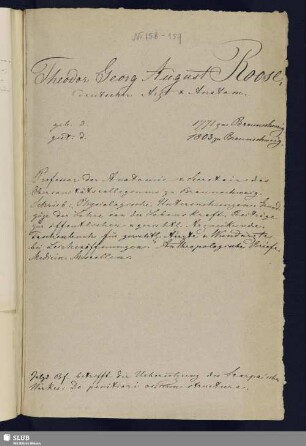 No 158-159
Theodor Georg August Roose,
deutscher Arzt & Anatom.
geb. d. 1771 zu Braunschweig
gest. d. 1803 zu Braunschweig
Professor der Anatomie & Secretair des
zu Braunschweig.
Schrieb: Physiologische Untersuchungen. Grund-
züge der Lehre von der Lebenskraft. Beiträge
zur öffentlichen & gerichtl. Arzneikunde.
Taschenbuch für gerichtl. Aerzte & Wundärzte
bei Leichenöffnungen. Anthropologische Briefe.
Medicin. Miscellen
Brf. betrifft die Uebersetzung des Scarpa'schen
Werkes: De penitiori ossium structura.